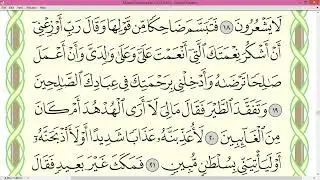 لَا يَشْعُرُونَ ١٨ فَتَبَسَّمَ ضَاحِكًا مِّن قَوْلِهَا وَقَالَ رَبِّ أَوْزِعْنِىٓ
أَنْ أَشْكُرَ نِعْمَتَكَ ٱلَّتِىٓ أَنْعَمْتَ عَلَىَّ وَعَلَىٰ وَٰلِدَىَّ وَأَنْ أَعْمَلَ
صَٰلِحًا تَرْضَىٰهُ وَأَدْخِلْنِى بِرَحْمَتِكَ فِى عِبَادِكَ ٱلصَّٰلِحِينَ
١٩ وَتَفَقَّدَ ٱلطَّيْرَ فَقَالَ مَالِىَ لَآ أَرَى ٱلْهُدْهُدَ أَمْ كَانَ
مِنَ ٱلْغَآئِبِينَ ٢٠ لَأُعَذِّبَنَّهُۥ عَذَابًا شَدِيدًا أَوْ لَأَا۟ذْبَحَنَّهُۥٓ
أَوْ لَيَأْتِيَنِّى بِسُلْطَٰنٍ مُّبِينٍ ٢١ فَمَكَثَ غَيْرَ بَعِيدٍ فَقَالَ